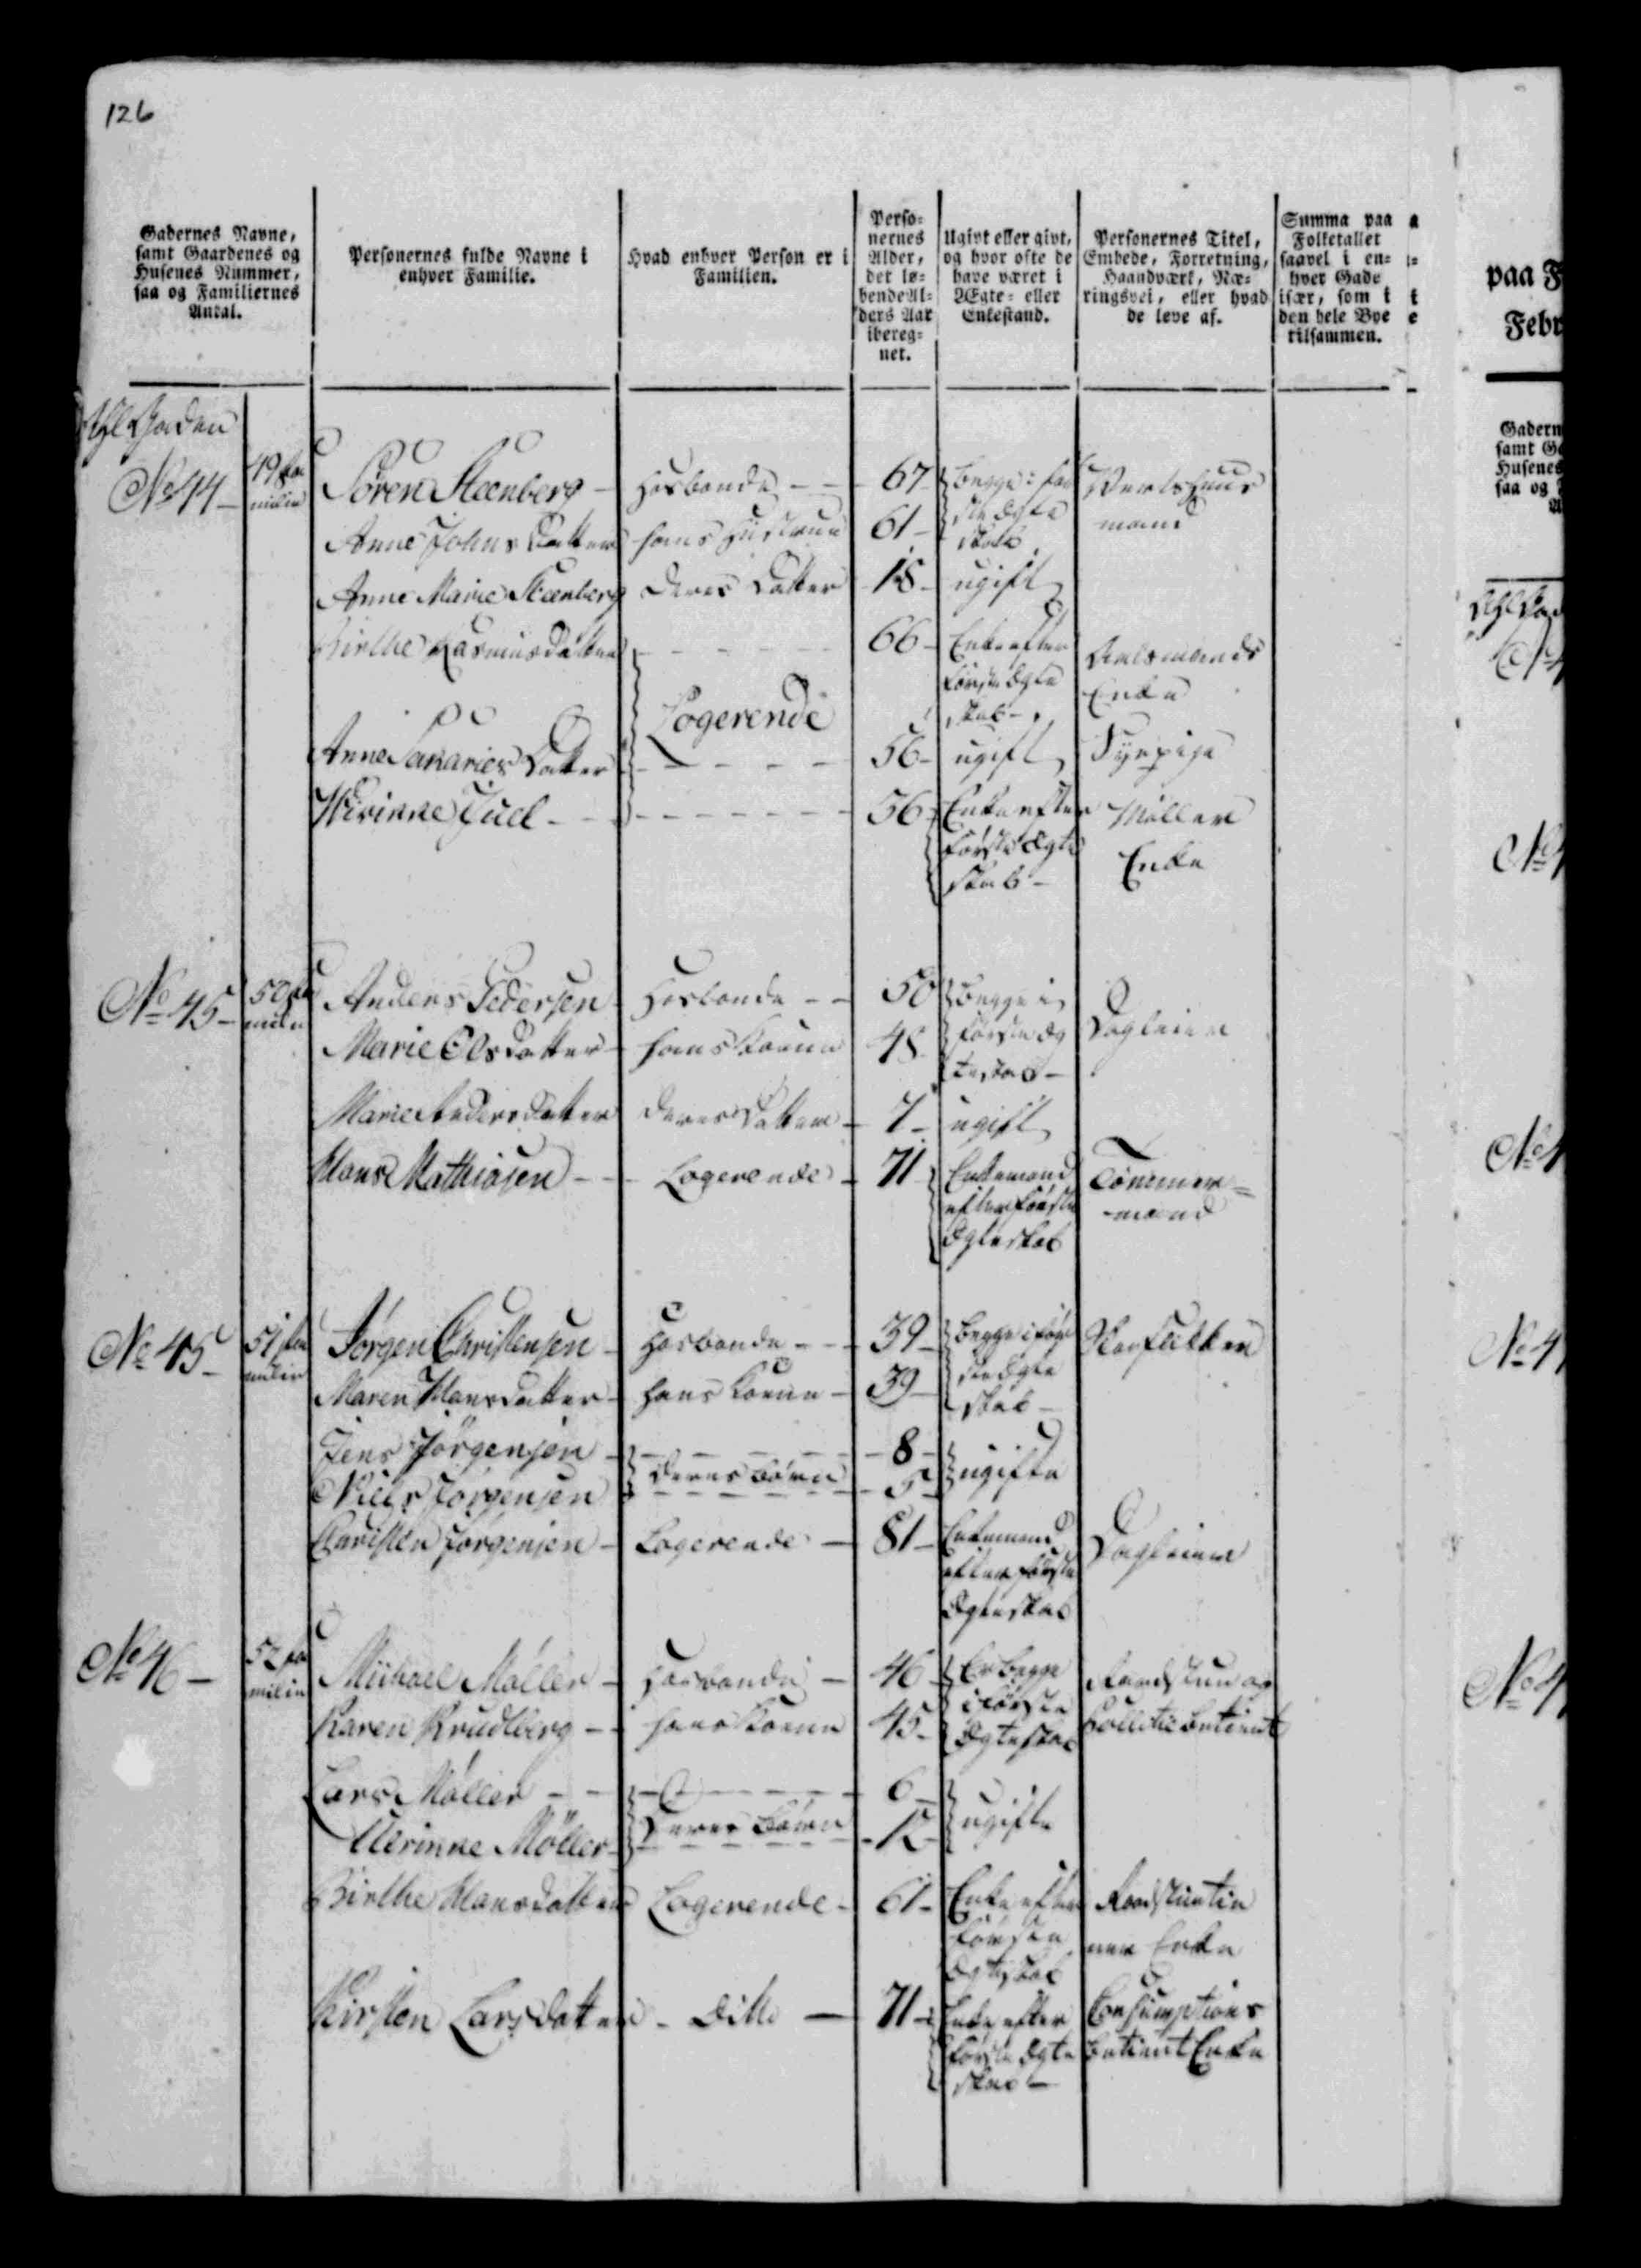 126
Gadernes Navne,
samt Gaardenes og
Husenes Nummer,
saa og Familiernes
Antal.
Personernes fulde Navne i
enhver Familie.
Hvad enhver Person er i
Familien.
Perso-
nernes
Alder,
det lø-
bende Al-
ders Aar
ibereg-
net.
Ugivt eller givt,
og hvor ofte de
have været i
Ægte- eller
Enkestand.
Personernes Titel,
Embede, Forretning,
Haandværk, Næ-
ringsvei, eller hvad
de leve af.
Summa paa
Folketallet
saavel i en-
hver Gade
især, som i
den hele Bye
tilsammen.
No 44 49 fa
milie
Sören Steenberg - Hosbonde - - 67 Begge iför
ste Ægte
skab
Vertshuus
mand
Anne Johns Datter hans Hustrue 61
Anne Marie Steenberg Deres Datter 18 ugift
Birthe Rasmusdatter - - - 66 Enke efter
förste Ægte
skab -
Enke
Logerende
Anne Sakaries Datter - - - 56 ugift Syepige
Kirinne Juel - - - 56 Enke efter
förste Ægte
skab -
Möller
Enke
No 45 50 fa
milie
Anders Pedersen Hosbonde - - 50 Begge i
förste Æg
teskab -
Dagleier
Marie Olsdatter - hans Kone 48
Marie Andersdatter deres Datter - 7 - ugift
Hans Mathiasen - - Logerende - 71 Enkemand
efter förste
Ægteskab
Tömmer=
mand
No 45 51 fa
milie
Jörgen Christensen - Hosbonde - - 39 Begge i för
ste Ægte
skab -
Maren Hansdatter - hans Kone - 39
Jens Jörgensen - - - 8 - ugifte
deres Börn
Niels Jörgensen - - - 5
Christen Jörgensen - Logerende - 81 Enkemand
efter förste
Ægteskab
Dagleier
No 46 - 52 fa
milie
Michael Möller - Hosbonde - 46 Er begge
i förste
Ægteskab
Betient
Karen Krudtberg - hans Kone 45
Lars Möller - - - 6 ugifte
Deres Börn
Nerinne Möller - - - 12
Birthe Hansdatter Logerende - 61 Enke efter
förste
Ægteskab
Enke
Kirsten Larsdatter - Ditto - 71 Enke efter
förste Ægte
skab -
Consumptions
betient Enke
paa F
Febr
Gadern
samt Ga
Husenes
saa og